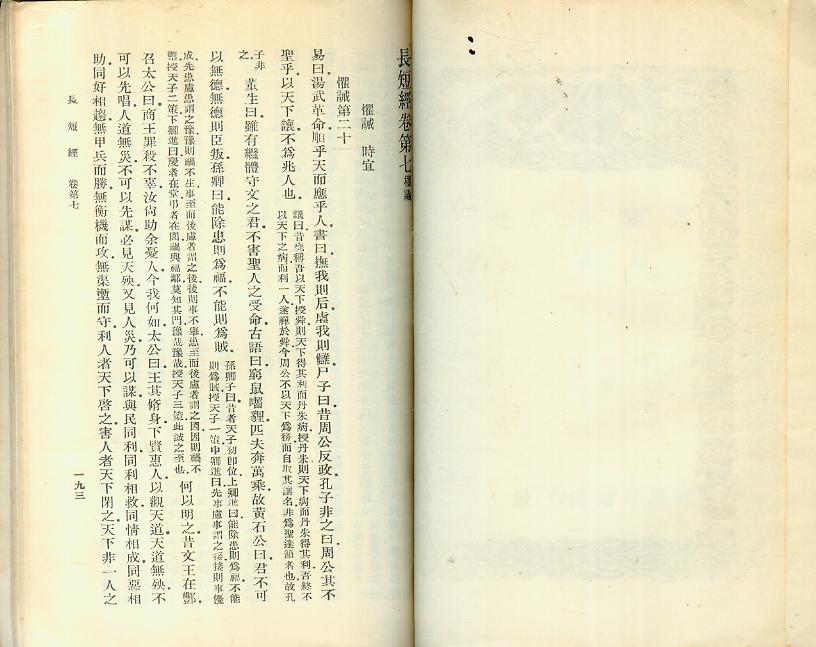 長短經卷第七 權議
懼誡 時宜
懼誡第二十
易曰湯武革命順乎天而應乎人書曰撫我則后虐我則讎尸子曰昔周公反政孔子非之曰周公其不
聖乎以天下讓不為兆人也
議曰昔堯稱吾以天下授舜則天下得其利而丹朱病授丹朱則天下病而丹朱得其利吾終不
以天下之病而利一人遂禪於舜今周公不以天下為務而自取其讓名非為聖達節者也故孔
子非
之
董生曰雖有繼體守文之君不害聖人之受命古語曰窮鼠囓貍匹夫奔萬乘故黃石公曰君不可
以無德無德則臣叛孫卿曰能除患則為福不能則為賊
孫卿子曰昔者天子初即位上卿進曰能除患則為福不能
則為賊授天子一策中卿進曰先事慮事謂之接接則事優
成先患慮患謂之豫豫則禍不生事至而後慮者謂之後後則事不舉患至而後慮者謂之困困則禍不
禦授天子二策下卿進曰慶者在堂弔者在閭禍與福鄰莫知其門豫哉豫哉授天子三策此誡之至也
何以明之昔文王在酆
召太公曰商王罪殺不辜汝尚助余憂人今我何如太公曰王其脩身下賢惠人以觀天道天道無殃不
可以先唱人道無災不可以先謀必見天殃又見人災乃可以謀與民同利同利相救同情相成同惡相
助同好相趨無甲兵而勝無衡機而攻無渠壍而守利人者天下啓之害人者天下閉之天下非一人之
長短經 卷第七
一九三